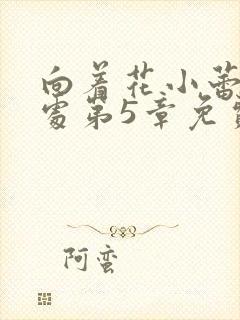 向着花小蕾
处第5章免费
阿蛮